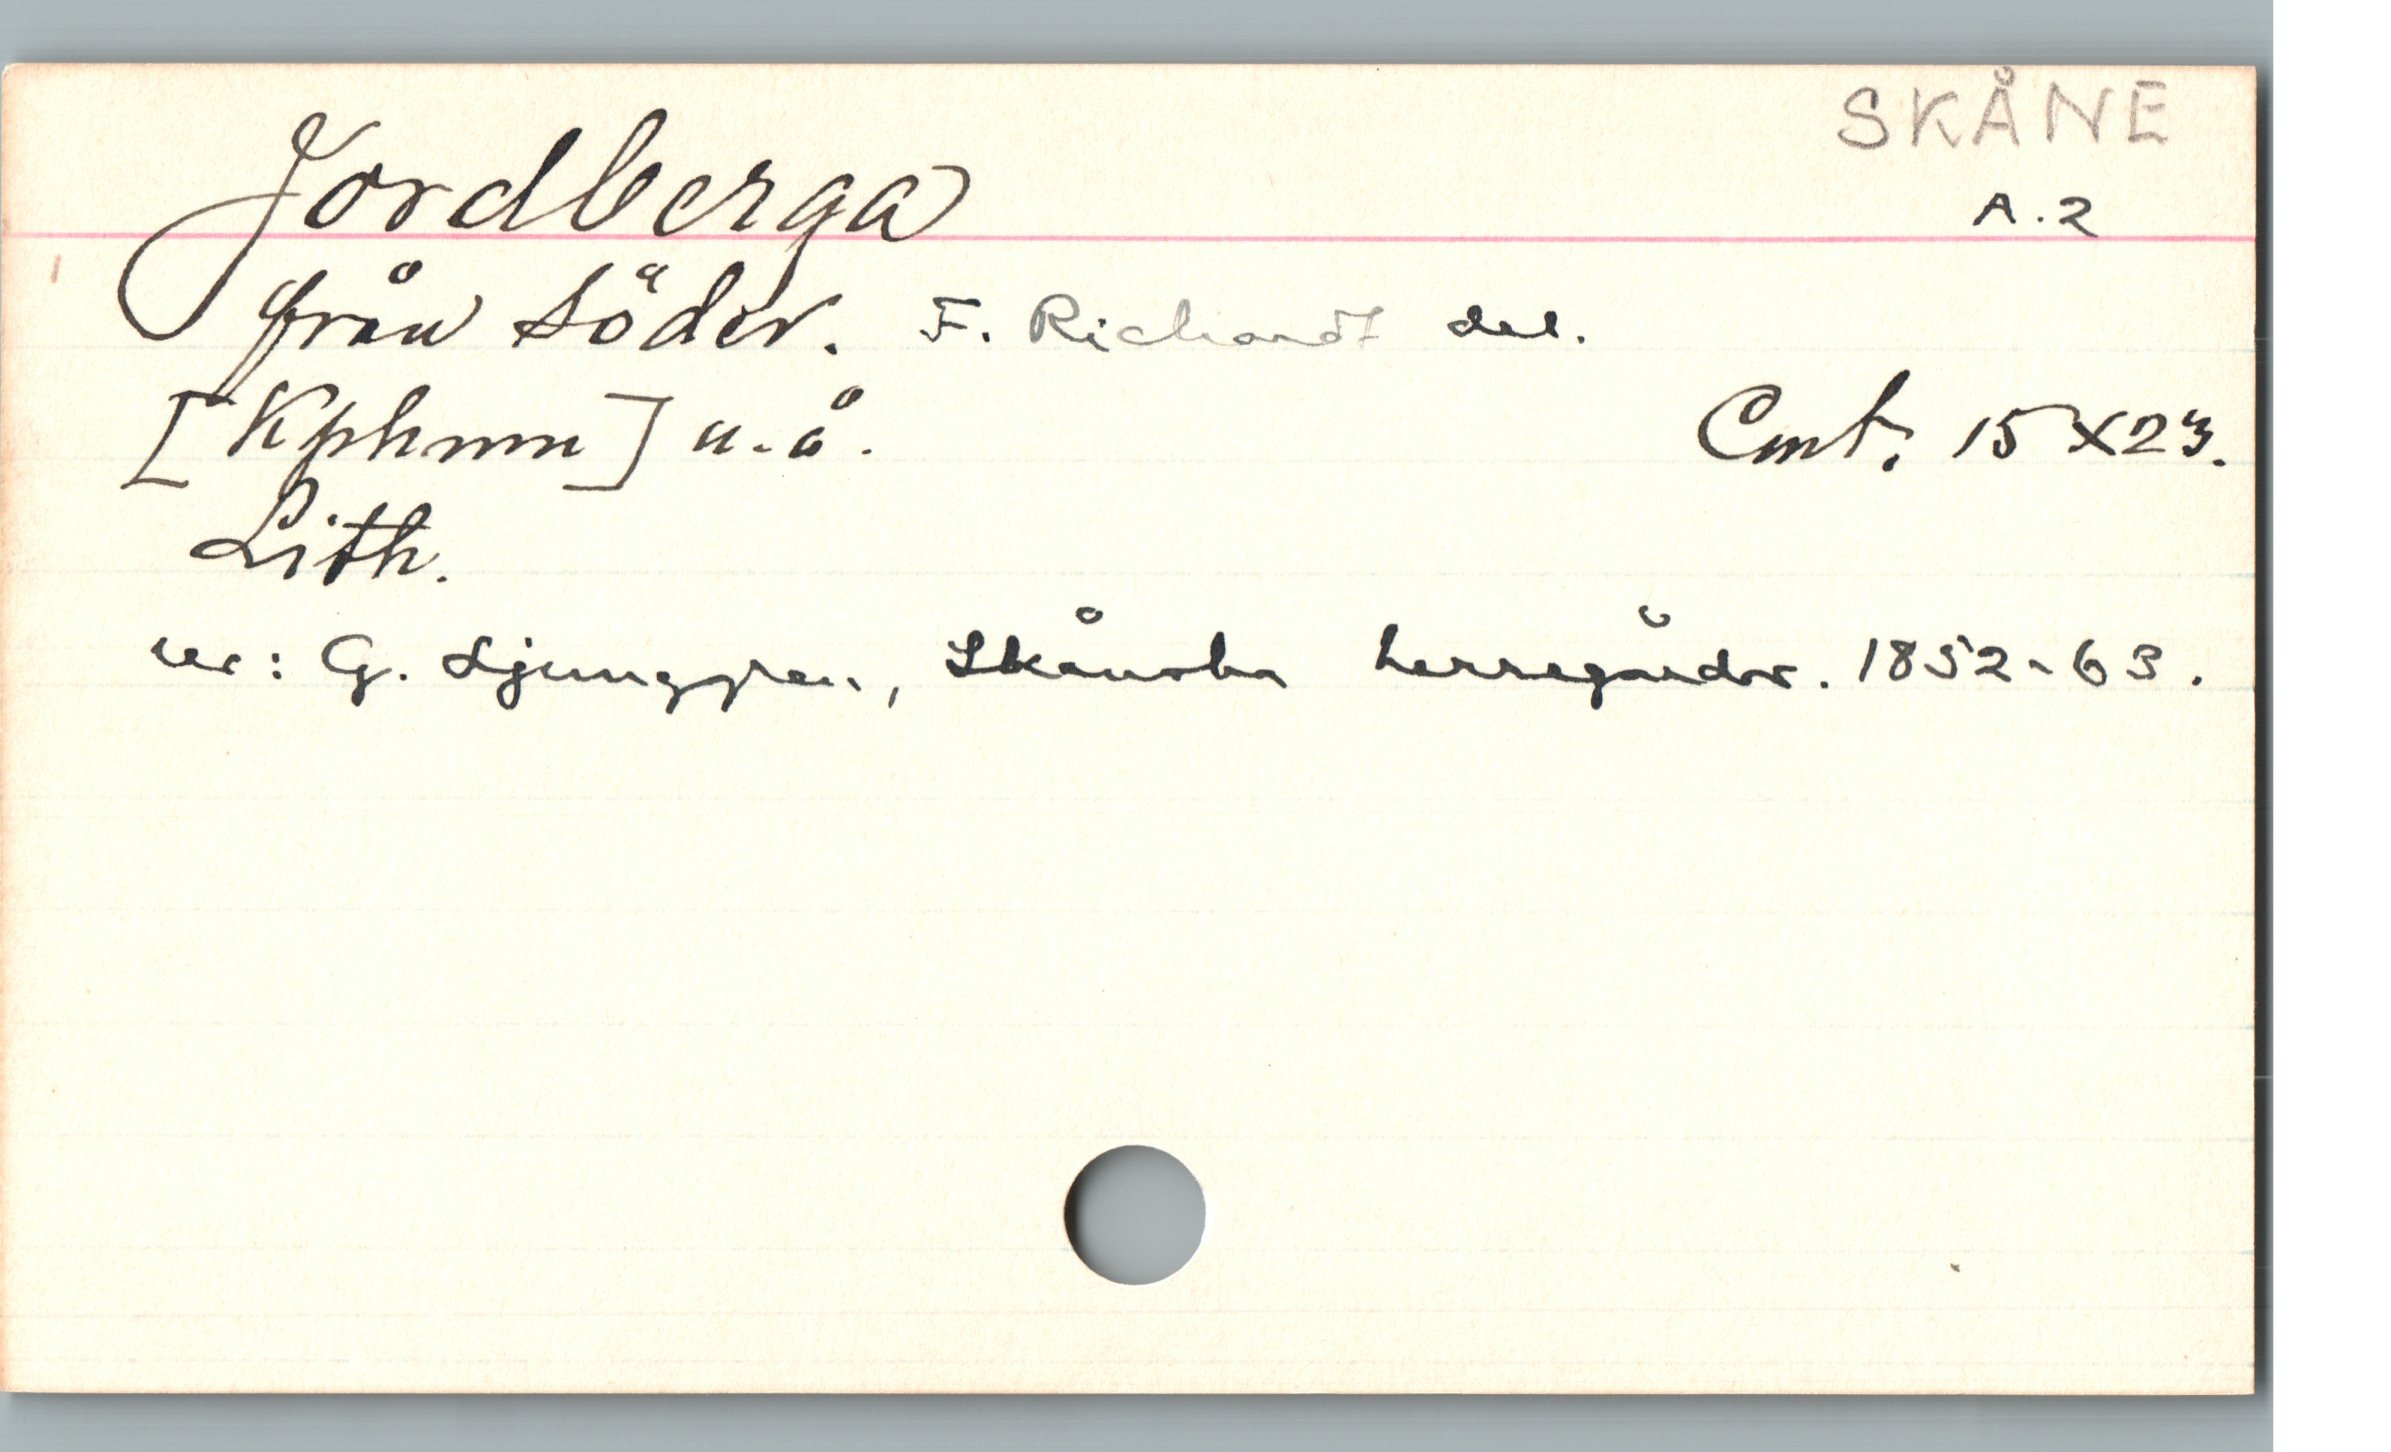 SKÅNE
Jordberga
A.2
från Söder. F. Richardt del.
[Kphmn] u.å. Cmt. 15x23.
Lith.
ur: G. Ljunggren, Skånska herregårdar. 1852-63.